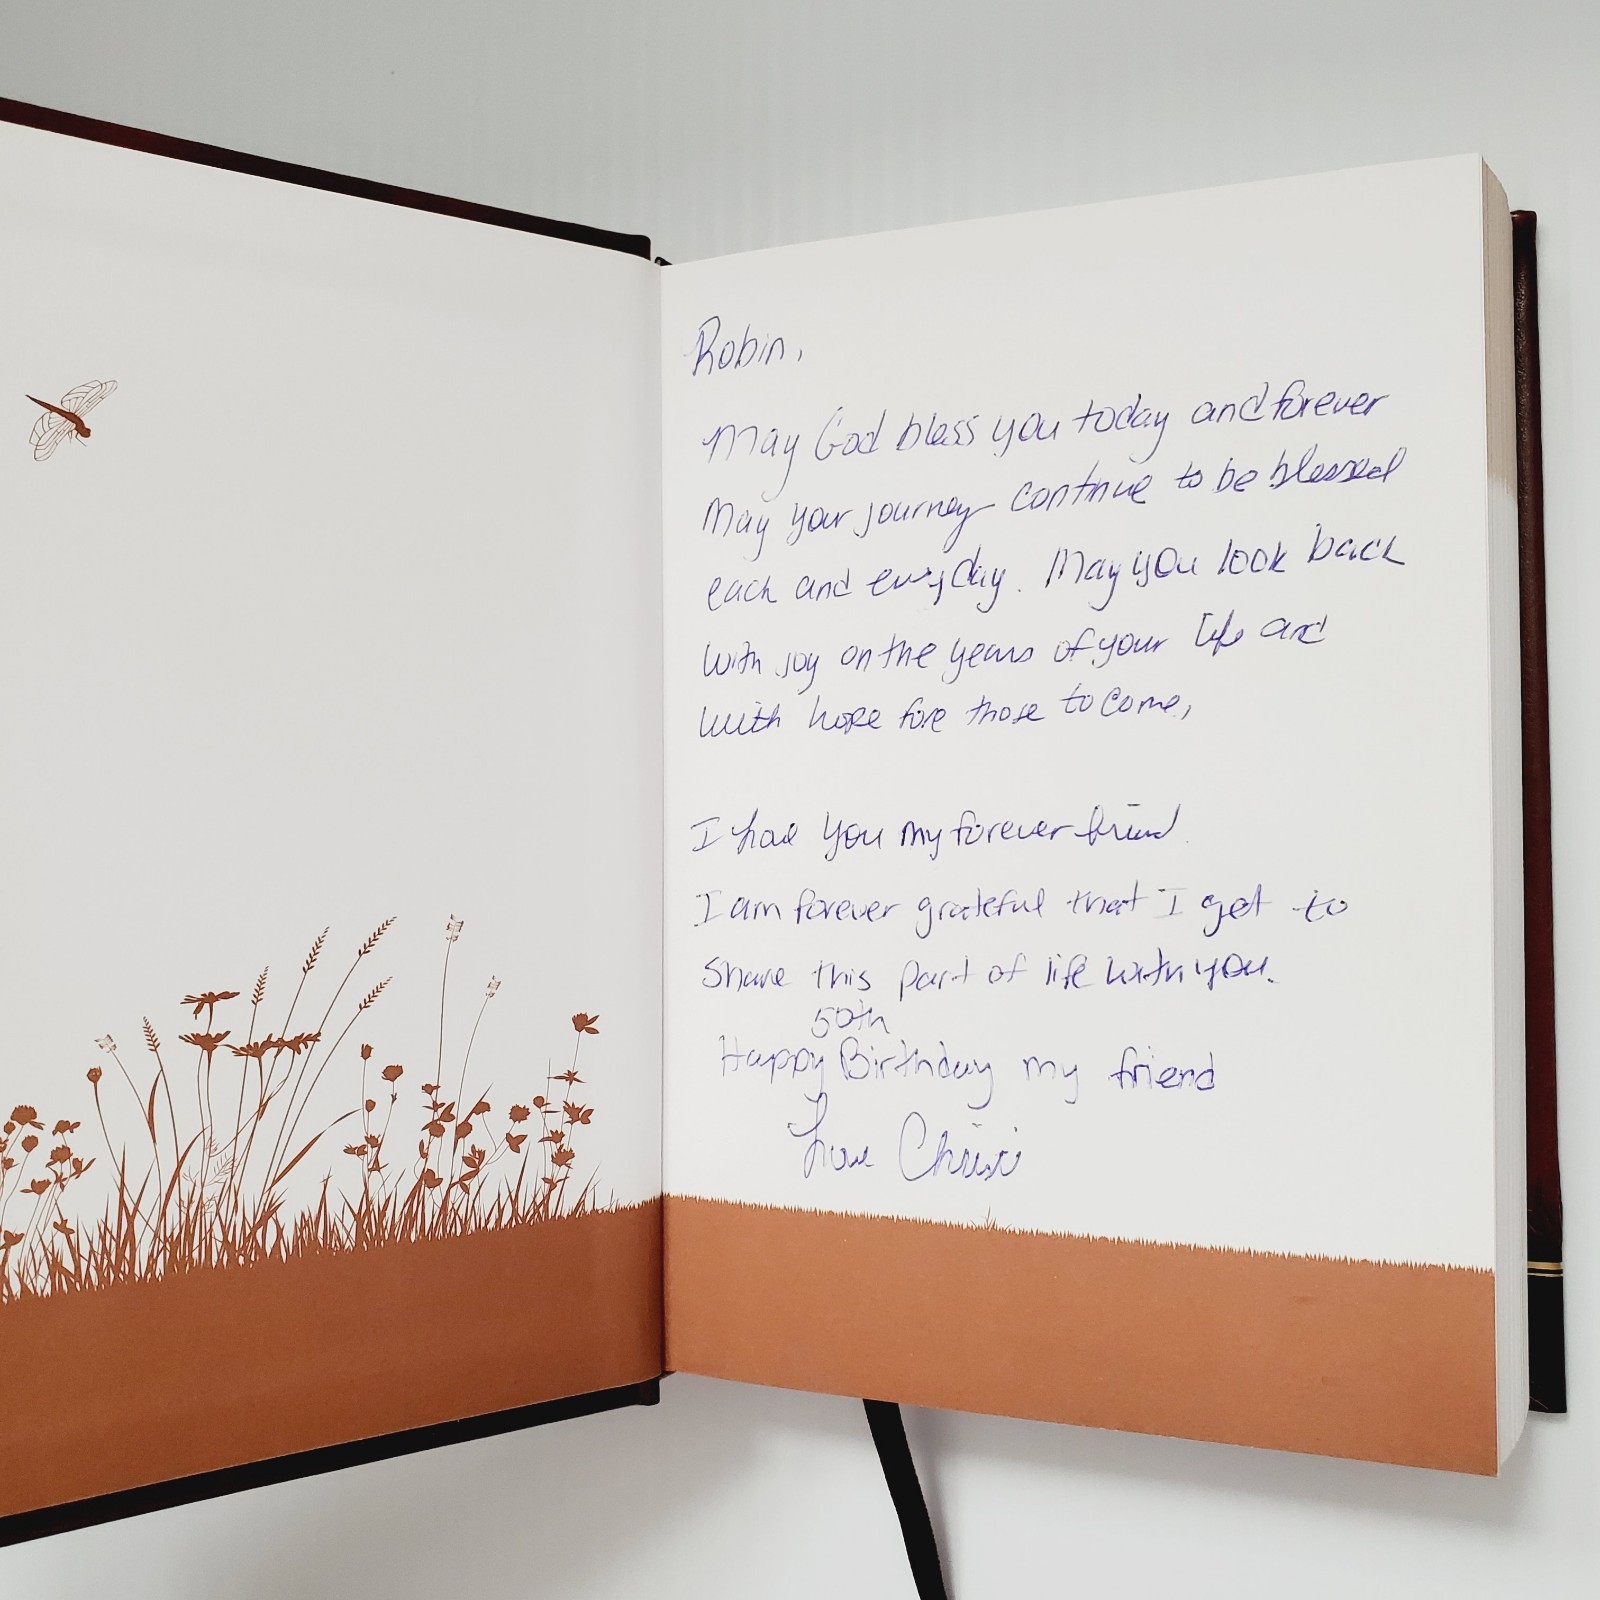 Robin,
May God bless you today and forever
May your journey continue to be blessed
each and everyday. May you look back
with joy on the years of your life and
with hope fore those to come,
I love you my forever friend.
I am forever grateful that I get to
share this part of life with you.
50th
Happy Birthday my friend
Love Christi